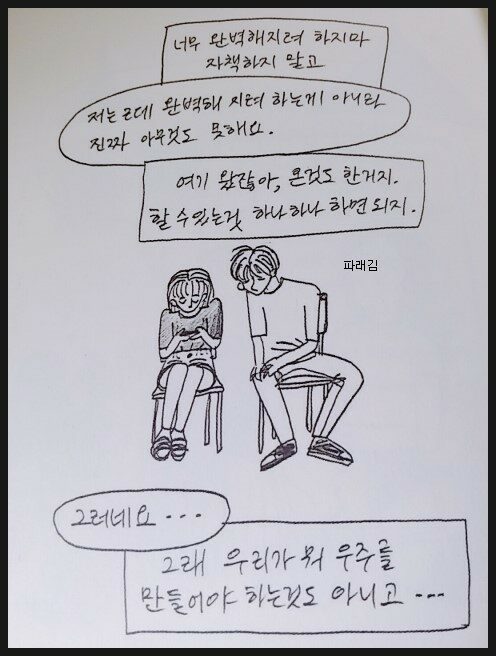 너무 완벽해지려 하지마
자책하지 말고
저는 근데 완벽해 지려 하는게 아니라
진짜 아무것도 못해요.
여기 왔잖아, 온것도 한거지.
할 수 있는것 하나하나 하면 되지.
파래김
그러네요 ···
그래 우리가 뭐 우주를
만들어야 하는것도 아니고 ---